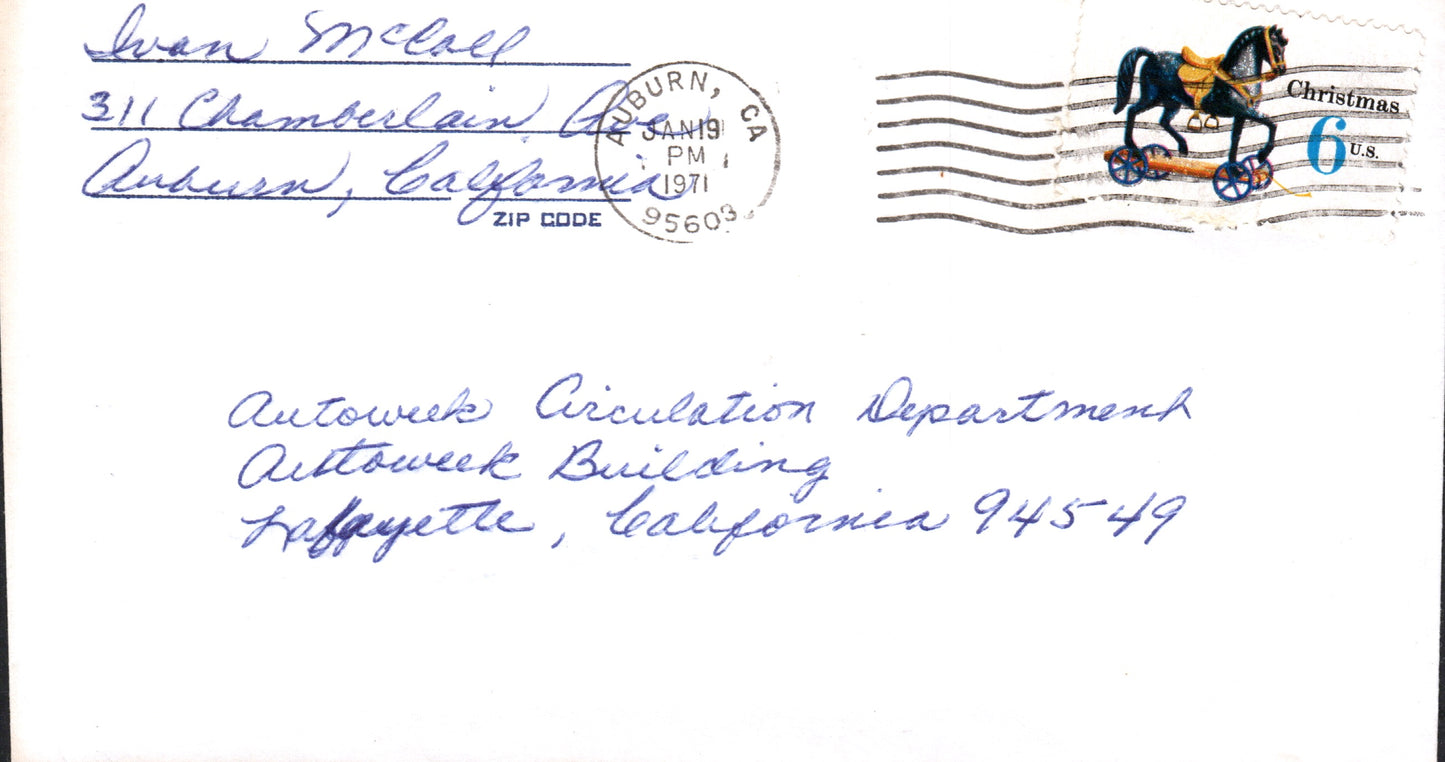 Ivan McCall
311 Chamberlain Ave
Auburn, California
ZIP CODE
AUBURN, CA
JAN 19
PM
1971
95603
Christmas
6 U.S.
Autoweek Circulation Department
Autoweek Building
Lafayette, California 94549